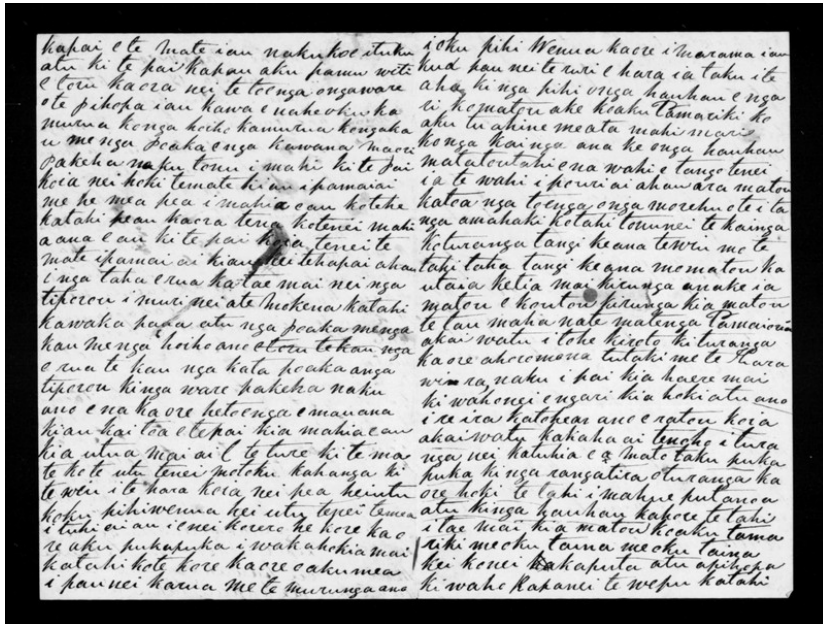 kapai e te mate iau naku koe i tuku
atu ki te pai kapau aku pamu witi
e toru kaora nei te toenga onga ware
ote pihopa iau kawa e nahe oku ka
murua konga hoiho kamurua kongaka
u me nga poaka enga kawana maori
pakeha naku tonu i mahi ki te pai
koia nei hoki temate kiau ipamaiai
me he mea pea i mahia eau kotehe
katahi peau kaora tena kotenei mahi
aana eau ki te pai koia tenei te
mate ipamai ai kiau nei tehapai ahau
i nga taha erua ka tae mai nei nga
tiporou i muri nei ate Mokena katahi
kawaka paaa atu nga poaka menga
kau menga hoiho ano etoru tekau nga
e rua te kau nga kata poaka anga
tiporou kinga ware pakeha naku
ano ena kaore hetoenga emauana
kiau kaitoa etepai kia mahia eau
kia utua mai ai e te ture ki te ma
te ko te utu tenei motoku kahanga ki
te weri i te hara koia nei pea heiutu
koku pihiwenua hei utu tepei temea
i tuhi ai au i enei korero he kore kao
re aku pukapuka i wakahokia mai
katahi kote kore kaore oakumea
i paunei karua me te murunga ano
i oku pihi Wenua kaore i marama iau
kua pau nei te ruri e hara ia taku i te
aha ki nga pihi onga hauhau e nga
ri komatou ake koaku Tamariki ko
aku tuahine meata mahi maris
konga kainga ana ke onga hauhau
matatoutahi ena wahi e tango tenei
ia te wahi i pouri ai ahau ara matou
katoa nga toenga onga morehu ote i ta
nga amahaki kotahi tonunei te kainga
koturanga tangi keana tewiu me te
tahi taha tangi keana mematou ka
utaia ketia mai kirunga anake ia
matou e koutou kirunga kia matou
te tau maha nate matenga Tamaioria
akai watu i tohe kiroto kituranga
kaore ahoromona tutaki me te Phara
wm ra naku i pai kia haere mai
ki wahonei engari kia hoki atu ano
i reira katoheau ano eratou koia
akaiwatu kakaha ai tenoho i tura
nga nei katuhia e a mate taku puka
puka ki nga rangatira oturanga ka
ore hoki te tahi i mahue putanoa
atu kinga hauhau kaore te tahi
i tae mai kia matou koaku tama
riki meoku taina meoku taina
kei konei kakaputa atu apihopa
ki waho Kapanei te wepu katahi